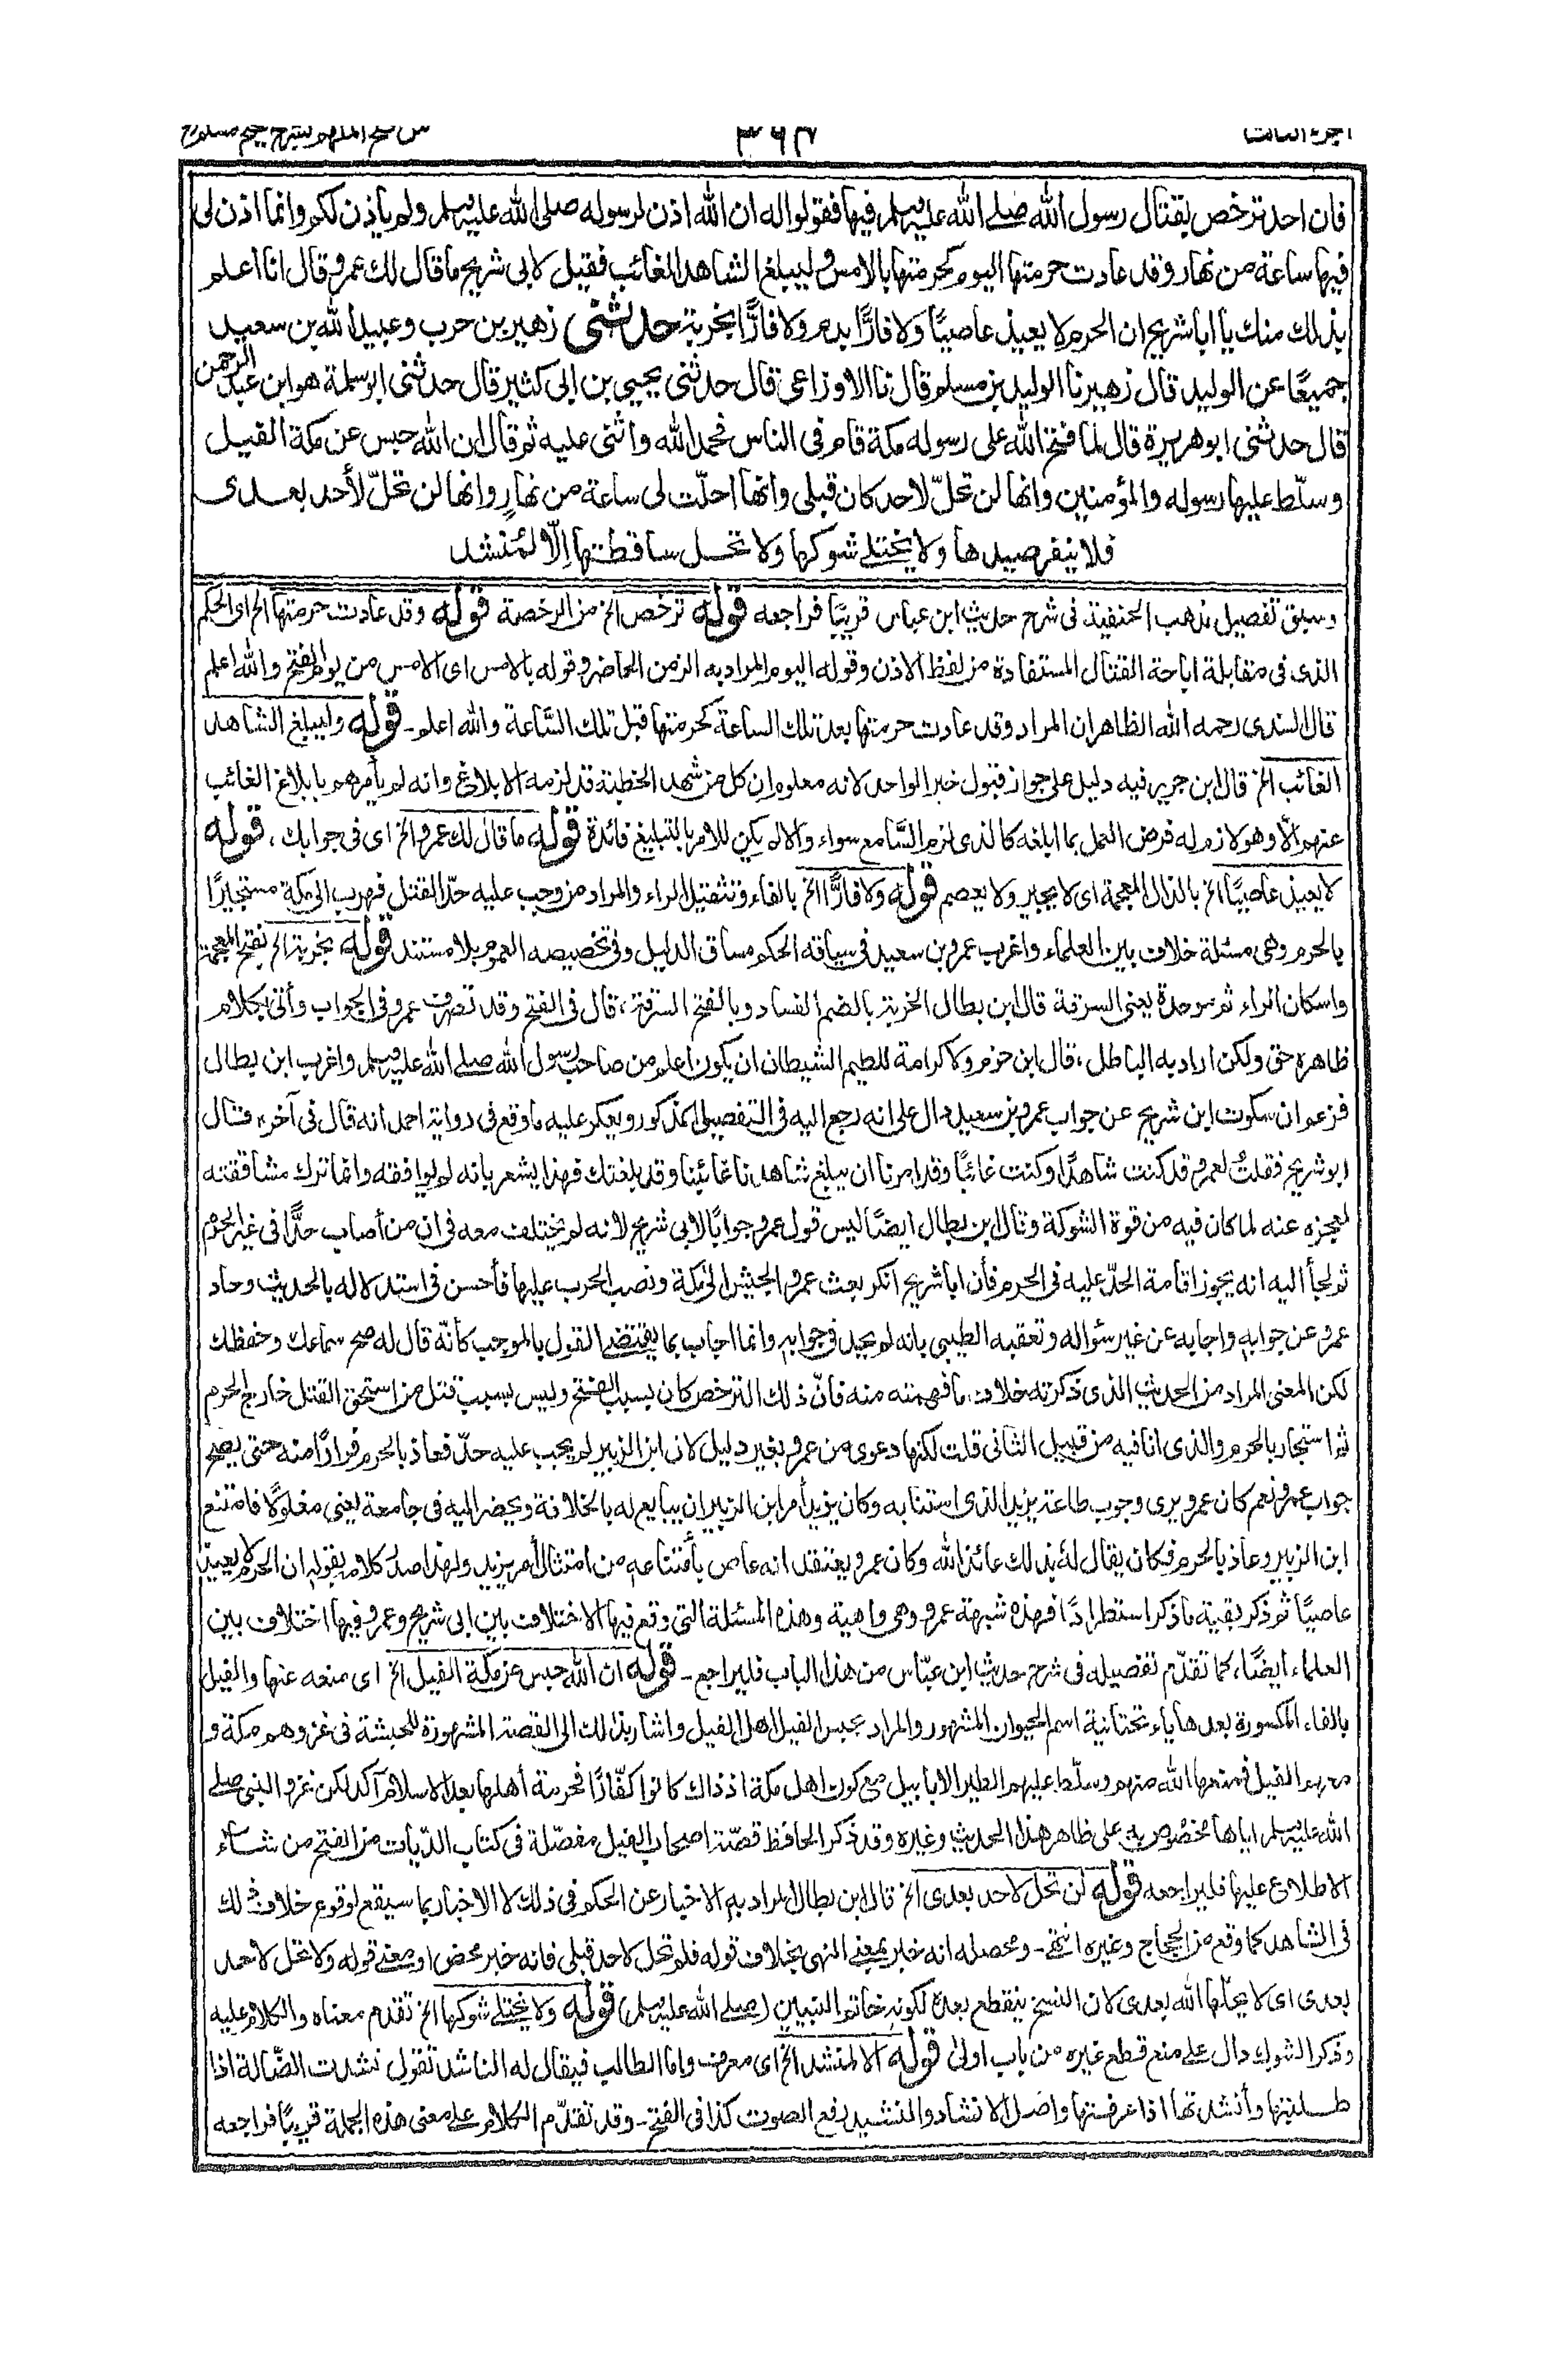 الجزء الثالث
٣٩٣
فتح الملهم بشرح صحيح مسلم
فان احد ترخص بقتال رسول الله صلى الله عليه وسلم فيها فقولوا له ان الله اذن لرسوله صلى الله عليه وسلم ولم يأذن لكم وانما اذن لى
فيها ساعة من نهار وقد عادت حرمتها اليوم كحرمتها بالامس وليبلغ الشاهد الغائب فقيل لابى شريح ما قال لك عمرو قال انا اعلم
بذلك منك يا ابا شريح ان الحرم لا يعيذ عاصيًا ولا فارًّا بدم ولا فارًّا بخربة حدثنى زهير بن حرب وعبيد الله بن سعيد
جميعًا عن الوليد قال زهير نا الوليد بن مسلم قال نا الاوزاعى قال حدثنى يحيى بن ابى كثير قال حدثنى ابو سلمة هو ابن عبد الرحمن
قال حدثنى ابو هريرة قال لما فتح الله على رسوله مكة قام فى الناس فحمد الله واثنى عليه ثم قال ان الله حبس عن مكة الفيل
وسلّط عليها رسوله والمؤمنين وانها لن تحلّ لاحد كان قبلى وانها احلّت لى ساعة من نهارٍ وانها لن تحلّ لأحد بعدى
فلا ينفر صيدها ولا يختلى شوكها ولا تحل ساقطتها اِلّا لمُنشد
وسبق تفصيل مذهب الحنفية فى شرح حديث ابن عباس قريبًا فراجعه قوله ترخص الخ من الرخصة قوله وقد عادت حرمتها الخ اى الحكم
الذى فى مقابلة اباحة القتال المستفادة من لفظ الاذن وقوله اليوم المراد به الزمن الحاضر وقوله بالامس اى الامس من يوم الفتح والله اعلم
قال السندى رحمه الله الظاهر ان المراد وقد عادت حرمتها بعد تلك الساعة كحرمتها قبل تلك السَّاعة والله اعلم۔ قوله وليبلغ الشاهد
الغائب الخ قال ابن جرير فيه دليل على جواز قبول خبر الواحد لانه معلوم ان كل من شهد الخطبة قد لزمه الابلاغ وانه لم يأمرهم بابلاغ الغائب
عنهم الّا وهو لازم له فرض العمل بما ابلغه كالذى لزم السَّامع سواء والا لم يكن للامر بالتبليغ فائدة قوله ما قال لك عمرو الخ اى فى جوابك، قوله
لا يعيذ عاصيًا الخ بالذال المعجمة اى لا يجير ولا يعصم قوله ولا فارًّا الخ بالفاء وتثقيل الراء والمراد من وجب عليه حدّ القتل فهرب الى مكة مستجيرًا
بالحرم وهى مسئلة خلاف بين العلماء واغرب عمرو بن سعيد فى سياقه الحكم مساق الدليل وفى تخصيصه العموم بلا مستند قوله بخربة الخ بفتح المعجمة
واسكان الراء ثم موحدة يعنى السرقة قال ابن بطال الخربة بالضم الفساد وبالفتح السرقة، قال فى الفتح وقد تصرف عمرو فى الجواب وأتى بكلام
ظاهره حق ولكن اراد به الباطل، قال ابن حزم ولا كرامة للطيم الشيطان ان يكون اعلم من صاحب رسول الله صلى الله عليه وسلم واغرب ابن بطال
فزعم ان سكوت ابن شريح عن جواب عمرو بن سعيد دال على انه رجع اليه فى التفصيل المذكور ويعكر عليه ما وقع فى رواية احمد انه قال فى آخره فقال
ابو شريح فقلتُ لعمرو قد كنت شاهدًا وكنت غائبًا وقد امرنا ان يبلغ شاهدنا غائبنا وقد بلغتك فهذا يشعر بانه لم يوافقه وانما ترك مشاققته
لعجزه عنه لما كان فيه من قوة الشوكة وقال ابن بطال ايضًا ليس قول عمرو جوابًا لابى شريح لأنه لم يختلف معه فى ان من أصاب حدًّا فى غير الحرم
ثم لجأ اليه انه يجوز اقامة الحدّ عليه فى الحرم فأن ابا شريح انكر بعث عمرو الجيش الى مكة ونصب الحرب عليها فأحسن فى استدلاله بالحديث وحاد
عمرو عن جوابه واجابه عن غير سؤاله وتعقبه الطيبى بانه لم يحد فى جوابه وانما اجاب بما يقتضى القول بالموجب كأنّه قال له صح سماعك وحفظك
لكن المعنى المراد من الحديث الذى ذكرته خلاف ما فهمته منه فانّ ذلك الترخص كان بسبب الفتح وليس بسبب قتل من استحق القتل خارج الحرم
ثم استجار بالحرم والذى انا فيه من قبيل الثانى قلت لكنها دعوى من عمرو بغير دليل لان ابن الزبير لم يجب عليه حدّ فعاذ بالحرم فرارًا منه حتى يصح
جواب عمرو نعم كان عمرو يرى وجوب طاعة يزيد الذى استنابه وكان يزيد أمر ابن الزبير ان يبايع له بالخلافة ويحضر اليه فى جامعة يعنى مغلولًا فامتنع
ابن الزبير وعاذ بالحرم فكان يقال له بذلك عائذ الله وكان عمرو يعتقد انه عاص بأمتناعه من امتثال أمر يزيد ولهذا صدّر كلامه بقوله ان الحرم لا يعيذ
عاصيًا ثم ذكر بقية ما ذكر استطرادًا فهذه شبهة عمرو وهى واهية وهذه المسئلة التى وقع فيها الاختلاف بين ابى شريح وعمرو فيها اختلاف بين
العلماء ايضًا، كما تقدّم تفصيله فى شرح حديث ابن عبّاس من هذا الباب فليراجع۔ قوله ان الله حبس عن مكة الفيل الخ اى منعه عنها والفيل
بالفاء المكسورة بعدها ياء تحتانية اسم الحيوان المشهور والمراد بحبس الفيل اهل الفيل واشار بذلك الى القصة المشهورة للحبشة فى غزوهم مكة و
معهم الفيل فمنعها الله منهم وسلّط عليهم الطير الابابيل مع كون اهل مكة اذ ذاك كانوا كفّارًا فحرمة أهلها بعد الاسلام آكد لكن غزو النبى صلى
الله عليه وسلم اياها مخصوص به على ظاهر هذا الحديث وغيره وقد ذكر الحافظ قصّة اصحاب الفيل مفصّلة فى كتاب الدّيات من الفتح من شاء
الاطلاع عليها فليراجعه قوله لن تحل لاحد بعدى الخ قال ابن بطال المراد به الاخبار عن الحكم فى ذلك لا الاخبار بما سيقع لوقوع خلاف ذلك
فى الشاهد كما وقع من الحجاج وغيره انتهى۔ ومحصله انه خبر بمعنى النهى بخلاف قوله فلم تحل لاحد قبلى فانه خبر محض او معنى قوله ولا تحل لاحد
بعدى اى لا يحلّها الله بعدى لان النسخ ينقطع بعده لكونه خاتم النبيين (صلى الله عليه وسلم) قوله ولا يختلى شوكها الخ تقدم معناه والكلام عليه
وذكر الشوك دال على منع قطع غيره من باب اولى قوله الا لمنشد الخ اى معرف واما الطالب فيقال له الناشد تقول نشدت الضّالة اذا
طلبتها وأنشدتها اذا عرفتها واصل الانشاد والنشيد رفع الصوت كذا فى الفتح۔ وقد تقدّم الكلام على معنى هذه الجملة قريبًا فراجعه